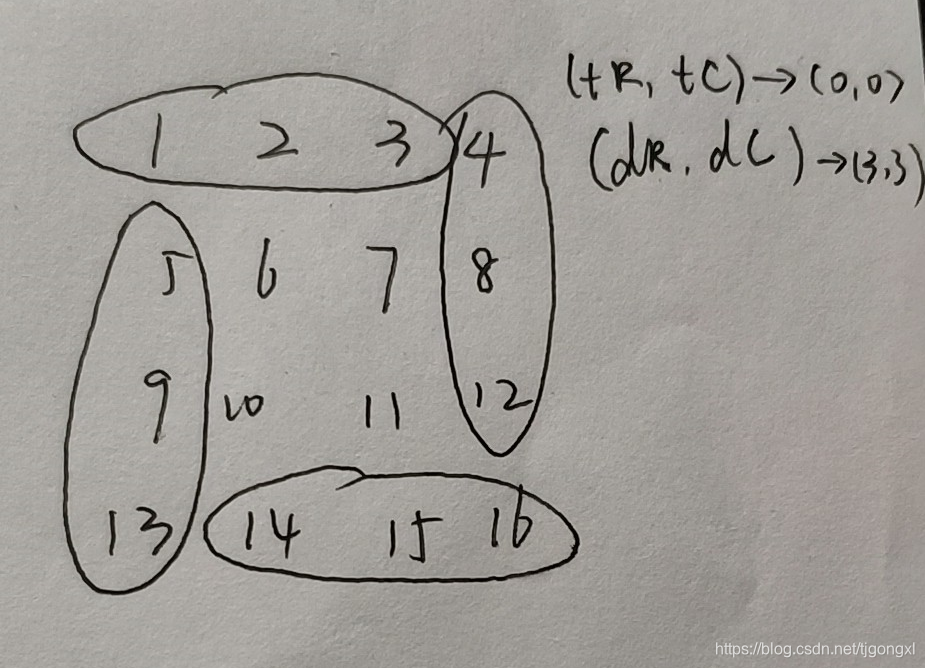 1 2 3 4
(tR, tC)→(0,0)
(dR, dC)→(3,3)
5 6 7 8
9 10 11 12
13 14 15 16
https://blog.csdn.net/tjgongxl